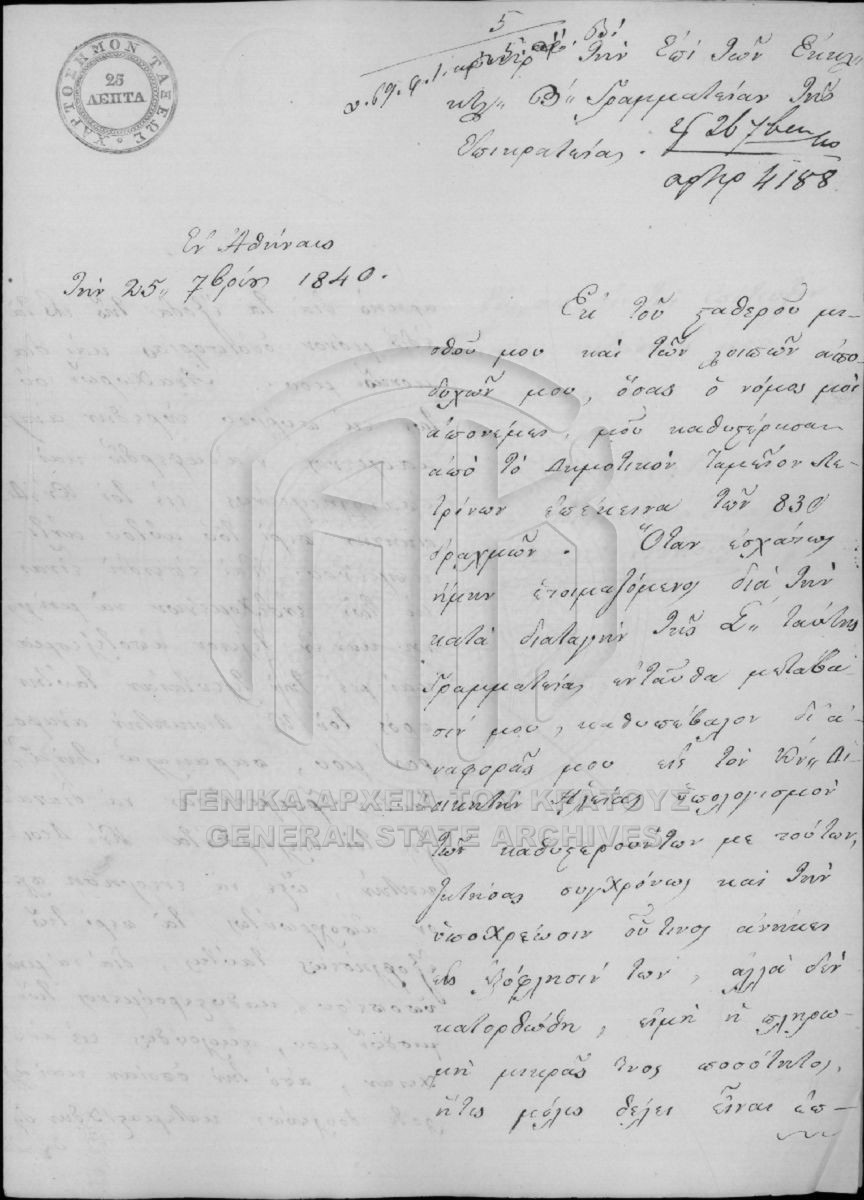 ΧΑΡΤΟΣΗΜΟΝ ΤΑΞΕΩΣ
25
ΛΕΠΤΑ
5
Τὴν Ἐπὶ τῶν Ἐκκλ"
κτλ" Β" Γραμματείαν τῆς
Ἐπικρατείας.
26 7βρίου
ἀρθρ 4188
Ἐν Ἀθήναις
τὴν 25" 7βρίου 1840.
Ἐκ τοῦ σταθεροῦ μι-
σθοῦ μου καὶ τῶν λοιπῶν ἀπο-
δοχῶν μου, ὅσας ὁ νόμος μοὶ
ἀπονέμει, μοῦ καθυστέρησαν
ἀπὸ τὸ Δημοτικὸν Ταμεῖον Λε-
τρίνων ἐπέκεινα τῶν 830
δραχμῶν. Ὅταν ἐσχάτως
ἤμην ἑτοιμαζόμενος διὰ τὴν
κατὰ διαταγὴν τῆς Σ" ταύτης
Γραμματείας ἐνταῦθα μετάβα
σίν μου, καθυπέβαλον δι' ἀ-
ναφορᾶς μου εἰς τὸν Διοι-
κητὴν Ἠλείας ὑπολογισμὸν
τῶν καθυστερούντων με τούτων,
ζητήσας συγχρόνως καὶ τὴν
ὑποχρέωσιν οὗτινος ἀνήκει
εἰς ἐξόφλησίν των, ἀλλὰ δὲν
κατορθώθη, εἰμὴ ἡ πληρω-
μὴ μικρᾶς τινος ποσότητος,
ἥτις μόλις θέλει εἶναι ἐπ-
ΓΕΝΙΚΑ ΑΡΧΕΙΑ ΤΟΥ ΚΡΑΤΟΥΣ
GENERAL STATE ARCHIVES